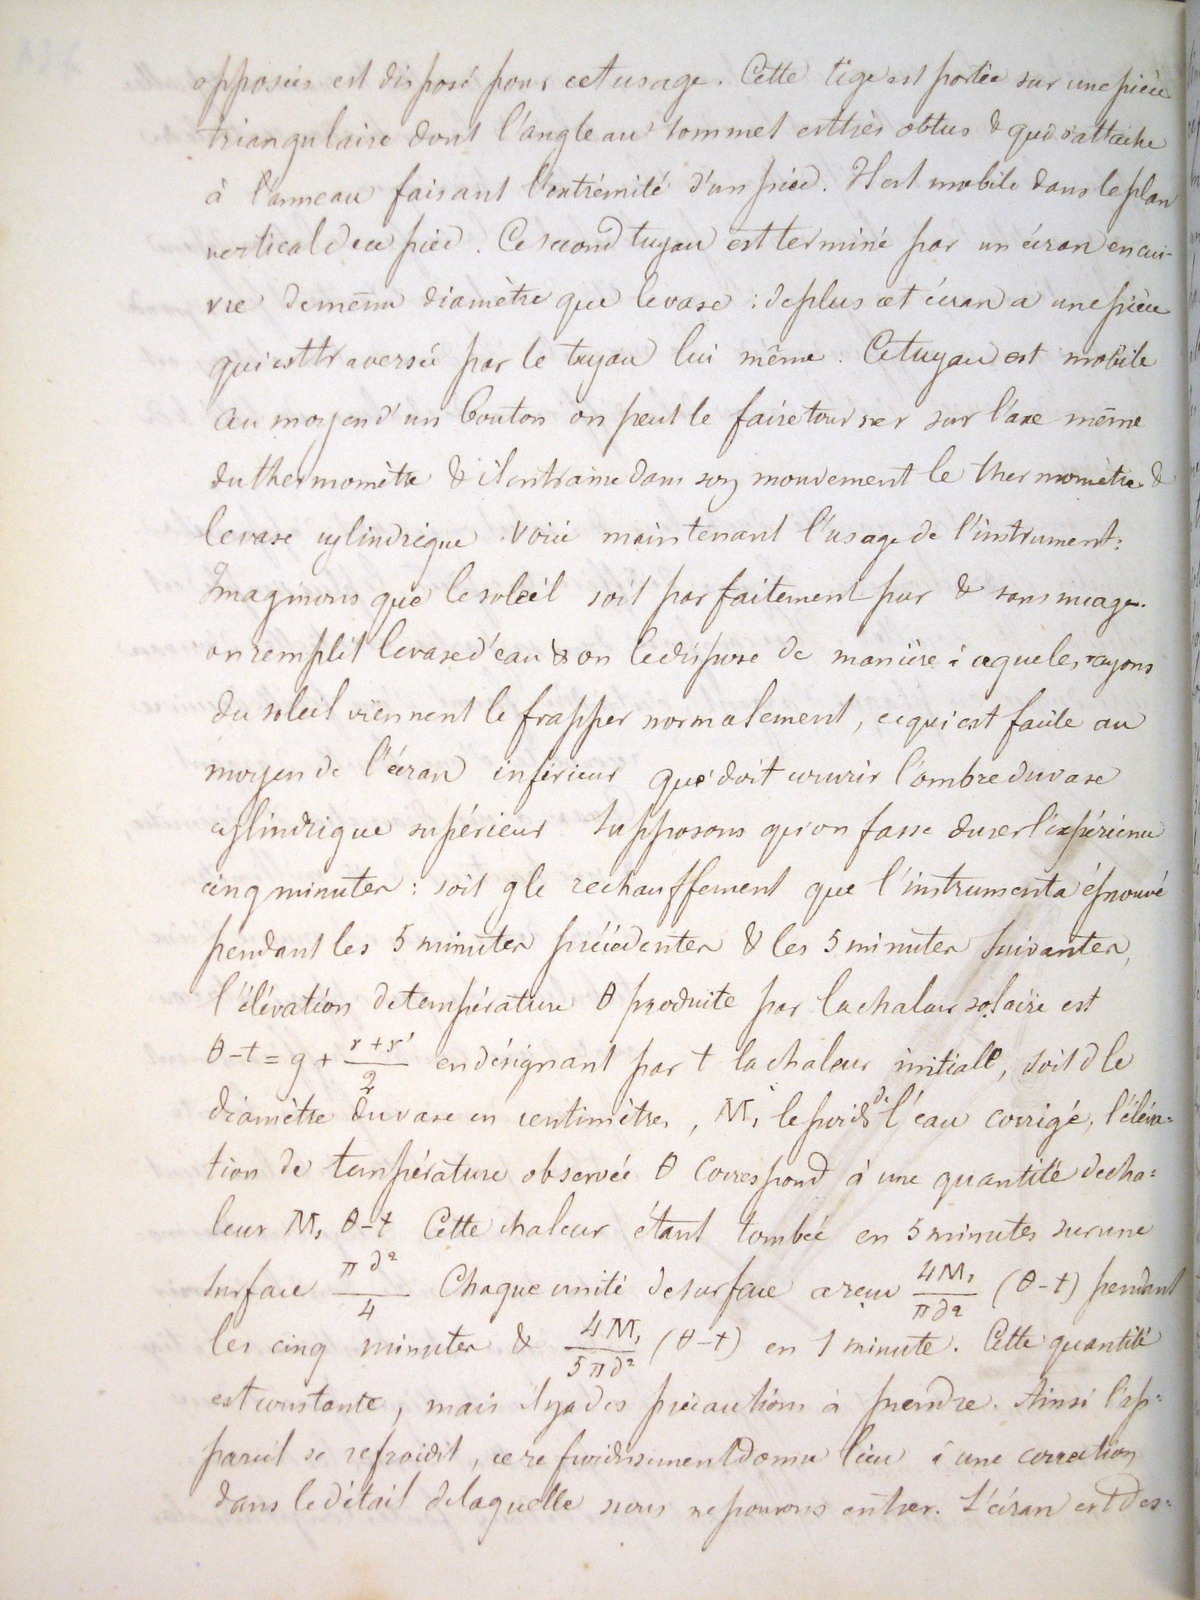 opposées est disposé pour cet usage. Cette tige est portée sur une pièce
triangulaire dont l'angle au sommet est très obtus & qui s'attache
à l'anneau faisant l'extrémité d'un pied. Il est mobile dans le plan
vertical de ce pied. Ce second tuyau est terminé par un écran en cui-
vre de même diamètre que le vase : de plus cet écran a une pièce
qui est traversée par le tuyau lui même. Ce tuyau est mobile
au moyen d'un bouton on peut le faire tourner sur l'axe même
du thermomètre & il entraine dans son mouvement le thermomètre &
le vase cylindrique. Voici maintenant l'usage de l'instrument:
Imaginons que le soleil soit parfaitement pur & sans nuage.
on remplit le vase d'eau & on le dispose de manière à ce que les rayons
du soleil viennent le frapper normalement, ce qui est facile au
moyen de l'écran inférieur que doit couvrir l'ombre du vase
cylindrique supérieur. Supposons qu'on fasse durer l'expérience
cinq minutes : soit g le rechauffement que l'instrument a éprouvé
pendant les 5 minutes précédentes & les 5 minutes suivantes,
l'élévation de température θ produite par la chaleur solaire est
θ-t = g + (r+r')/2 en désignant par t la chaleur initiale, soit d le
diamètre du vase en centimètres, M, le poids de l'eau corrigé, l'éléva=
tion de température observée θ correspond à une quantité de cha=
leur M, θ-t Cette chaleur étant tombée en 5 minutes sur une
surface πd²/4 Chaque unité de surface a reçu 4M,/πd² (θ-t) pendant
les cinq minutes & 4M,/5πd² (θ-t) en 1 minute. Cette quantité
est constante, mais il y a des précautions à prendre. Ainsi l'ap=
pareil se refroidit, ce refroidissement donne lieu à une correction
dans le détail de laquelle nous ne pouvons entrer. L'écran est des=